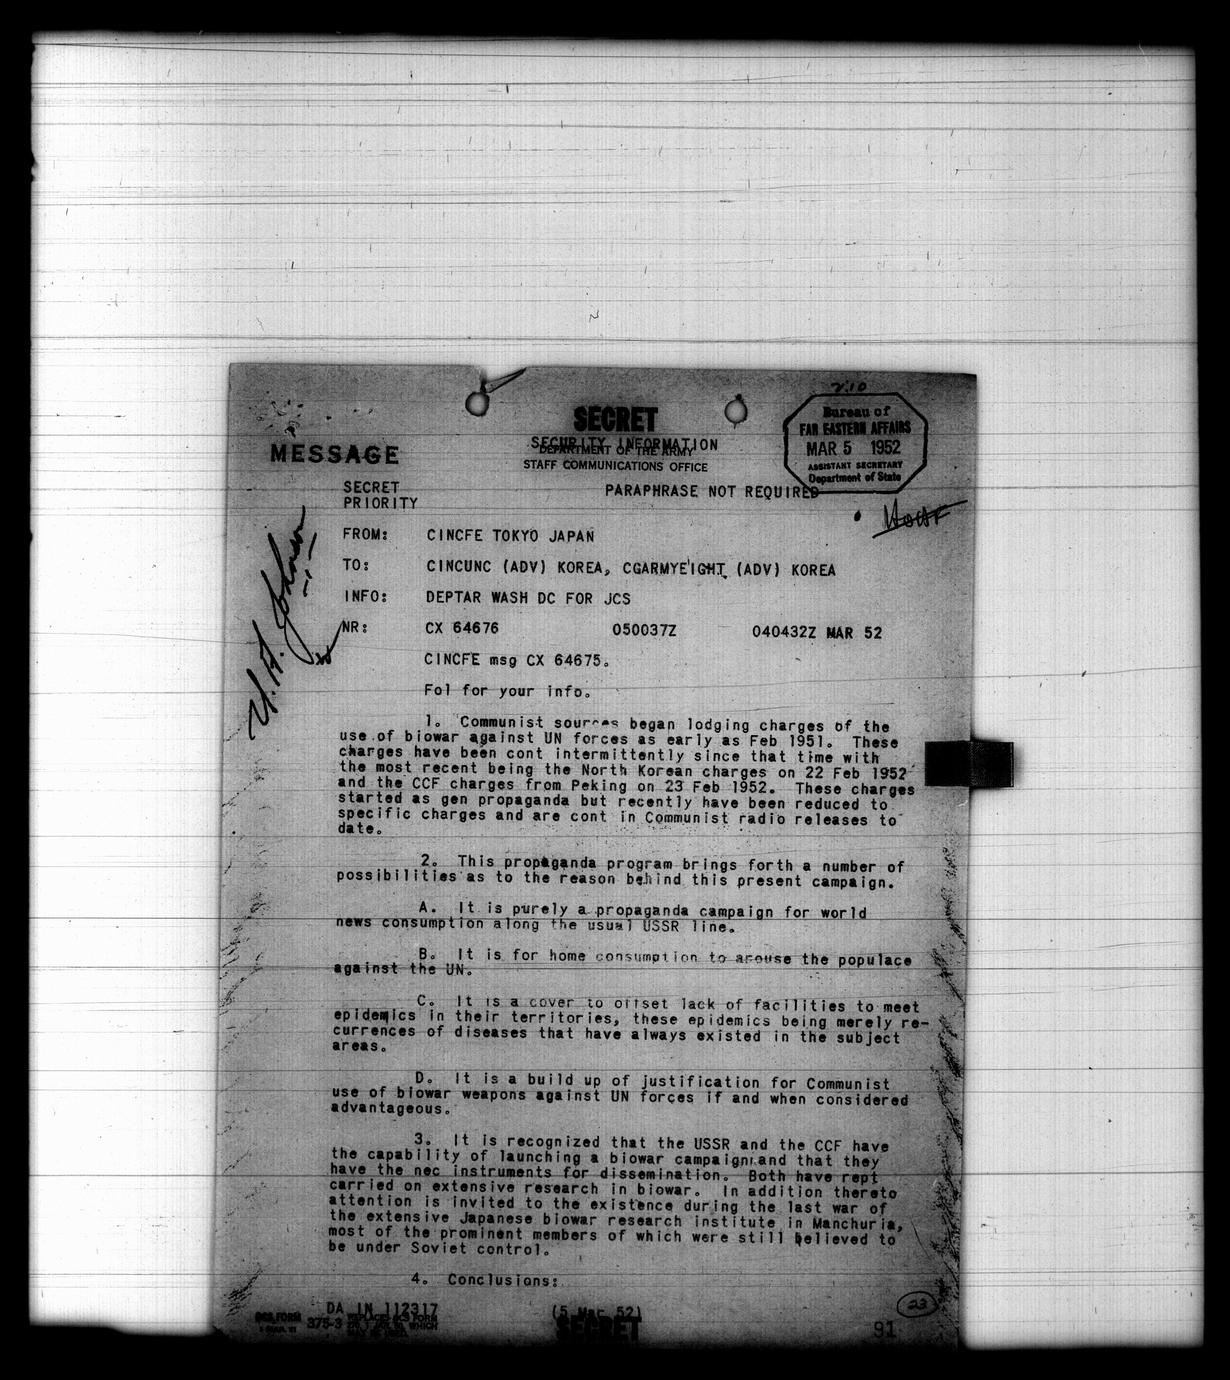 2.10
SECRET
SECURITY INFORMATION
DEPARTMENT OF THE ARMY
STAFF COMMUNICATIONS OFFICE
MESSAGE
Bureau of
FAR EASTERN AFFAIRS
MAR 5 1952
ASSISTANT SECRETARY
Department of State
SECRET
PARAPHRASE NOT REQUIRED
PRIORITY
U. A. Johnson
FROM: CINCFE TOKYO JAPAN
TO: CINCUNC (ADV) KOREA, CGARMYEIGHT (ADV) KOREA
INFO: DEPTAR WASH DC FOR JCS
NR: CX 64676 050037Z 040432Z MAR 52
CINCFE msg CX 64675.
Fol for your info.
1. Communist sources began lodging charges of the
use of biowar against UN forces as early as Feb 1951. These
charges have been cont intermittently since that time with
the most recent being the North Korean charges on 22 Feb 1952
and the CCF charges from Peking on 23 Feb 1952. These charges
started as gen propaganda but recently have been reduced to
specific charges and are cont in Communist radio releases to
date.
2. This propaganda program brings forth a number of
possibilities as to the reason behind this present campaign.
A. It is purely a propaganda campaign for world
news consumption along the usual USSR line.
B. It is for home consumption to arouse the populace
against the UN.
C. It is a cover to offset lack of facilities to meet
epidemics in their territories, these epidemics being merely re-
currences of diseases that have always existed in the subject
areas.
D. It is a build up of justification for Communist
use of biowar weapons against UN forces if and when considered
advantageous.
3. It is recognized that the USSR and the CCF have
the capability of launching a biowar campaign and that they
have the nec instruments for dissemination. Both have rept
carried on extensive research in biowar. In addition thereto
attention is invited to the existence during the last war of
the extensive Japanese biowar research institute in Manchuria,
most of the prominent members of which were still believed to
be under Soviet control.
4. Conclusions:
DA IN 112317 (5 Mar 52)
23
OCS FORM 375-3 REPLACES OCS FORM
WHICH
SECRET
91